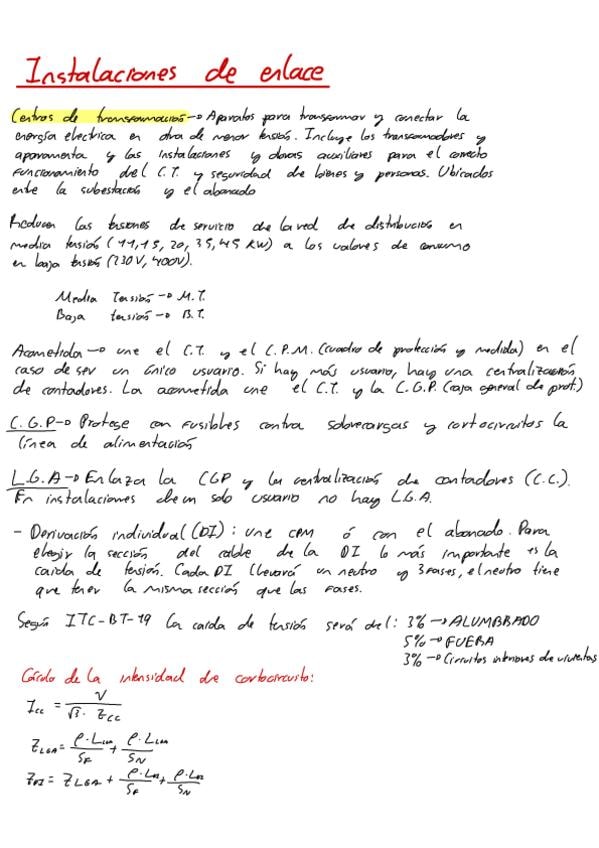 Instalaciones de enlace
Centros de transformación → Aparatos para transformar y conectar la
energía electrica en otra de menor tensión. Incluye los transformadores y
aparamenta y las instalaciones y obras auxiliares para el correcto
funcionamiento del C.T. y seguridad de bienes y personas. Ubicados
ente la subestación y el abonado
Reducen las tensiones de servicio de la red de distribución en
media tensión (11, 15, 20, 35, 45 KW) a los valores de consumo
en baja tensión (230V, 400V).
Media Tensión → M.T.
Baja tensión → B.T.
Acometida → une el C.T. y el C.P.M. (cuadro de protección y medida) en el
caso de ser un único usuario. Si hay más usuario, hay una centralización
de contadores. La acometida une el C.T. y la C.G.P. (caja general de prot.)
C.G.P → Protege con fusibles contra sobrecargas y cortocircuitos la
línea de alimentación
L.G.A → Enlaza la CGP y la centralización de contadores (C.C.).
En instalaciones de un solo usuario no hay L.G.A.
- Derivación individual (DI): une CPM ó con el abonado. Para
elegir la sección del cable de la DI lo más importante es la
caida de tensión. Cada DI llevará un neutro y 3 fases, el neutro tiene
que tener la misma sección que las fases.
Según ITC-BT-19 la caida de tensión será del: 3% → ALUMBRADO
5% → FUERA
3% → Circuitos interiores de viviendas
Cálculo de la intensidad de cortocircuito:
Icc = V / (√3 · Zcc)
Z_LGA = ρ·L_LGA / S_F + ρ·L_LGA / S_N
Z_DI = Z_LGA + ρ·L_DI / S_F + ρ·L_DI / S_N